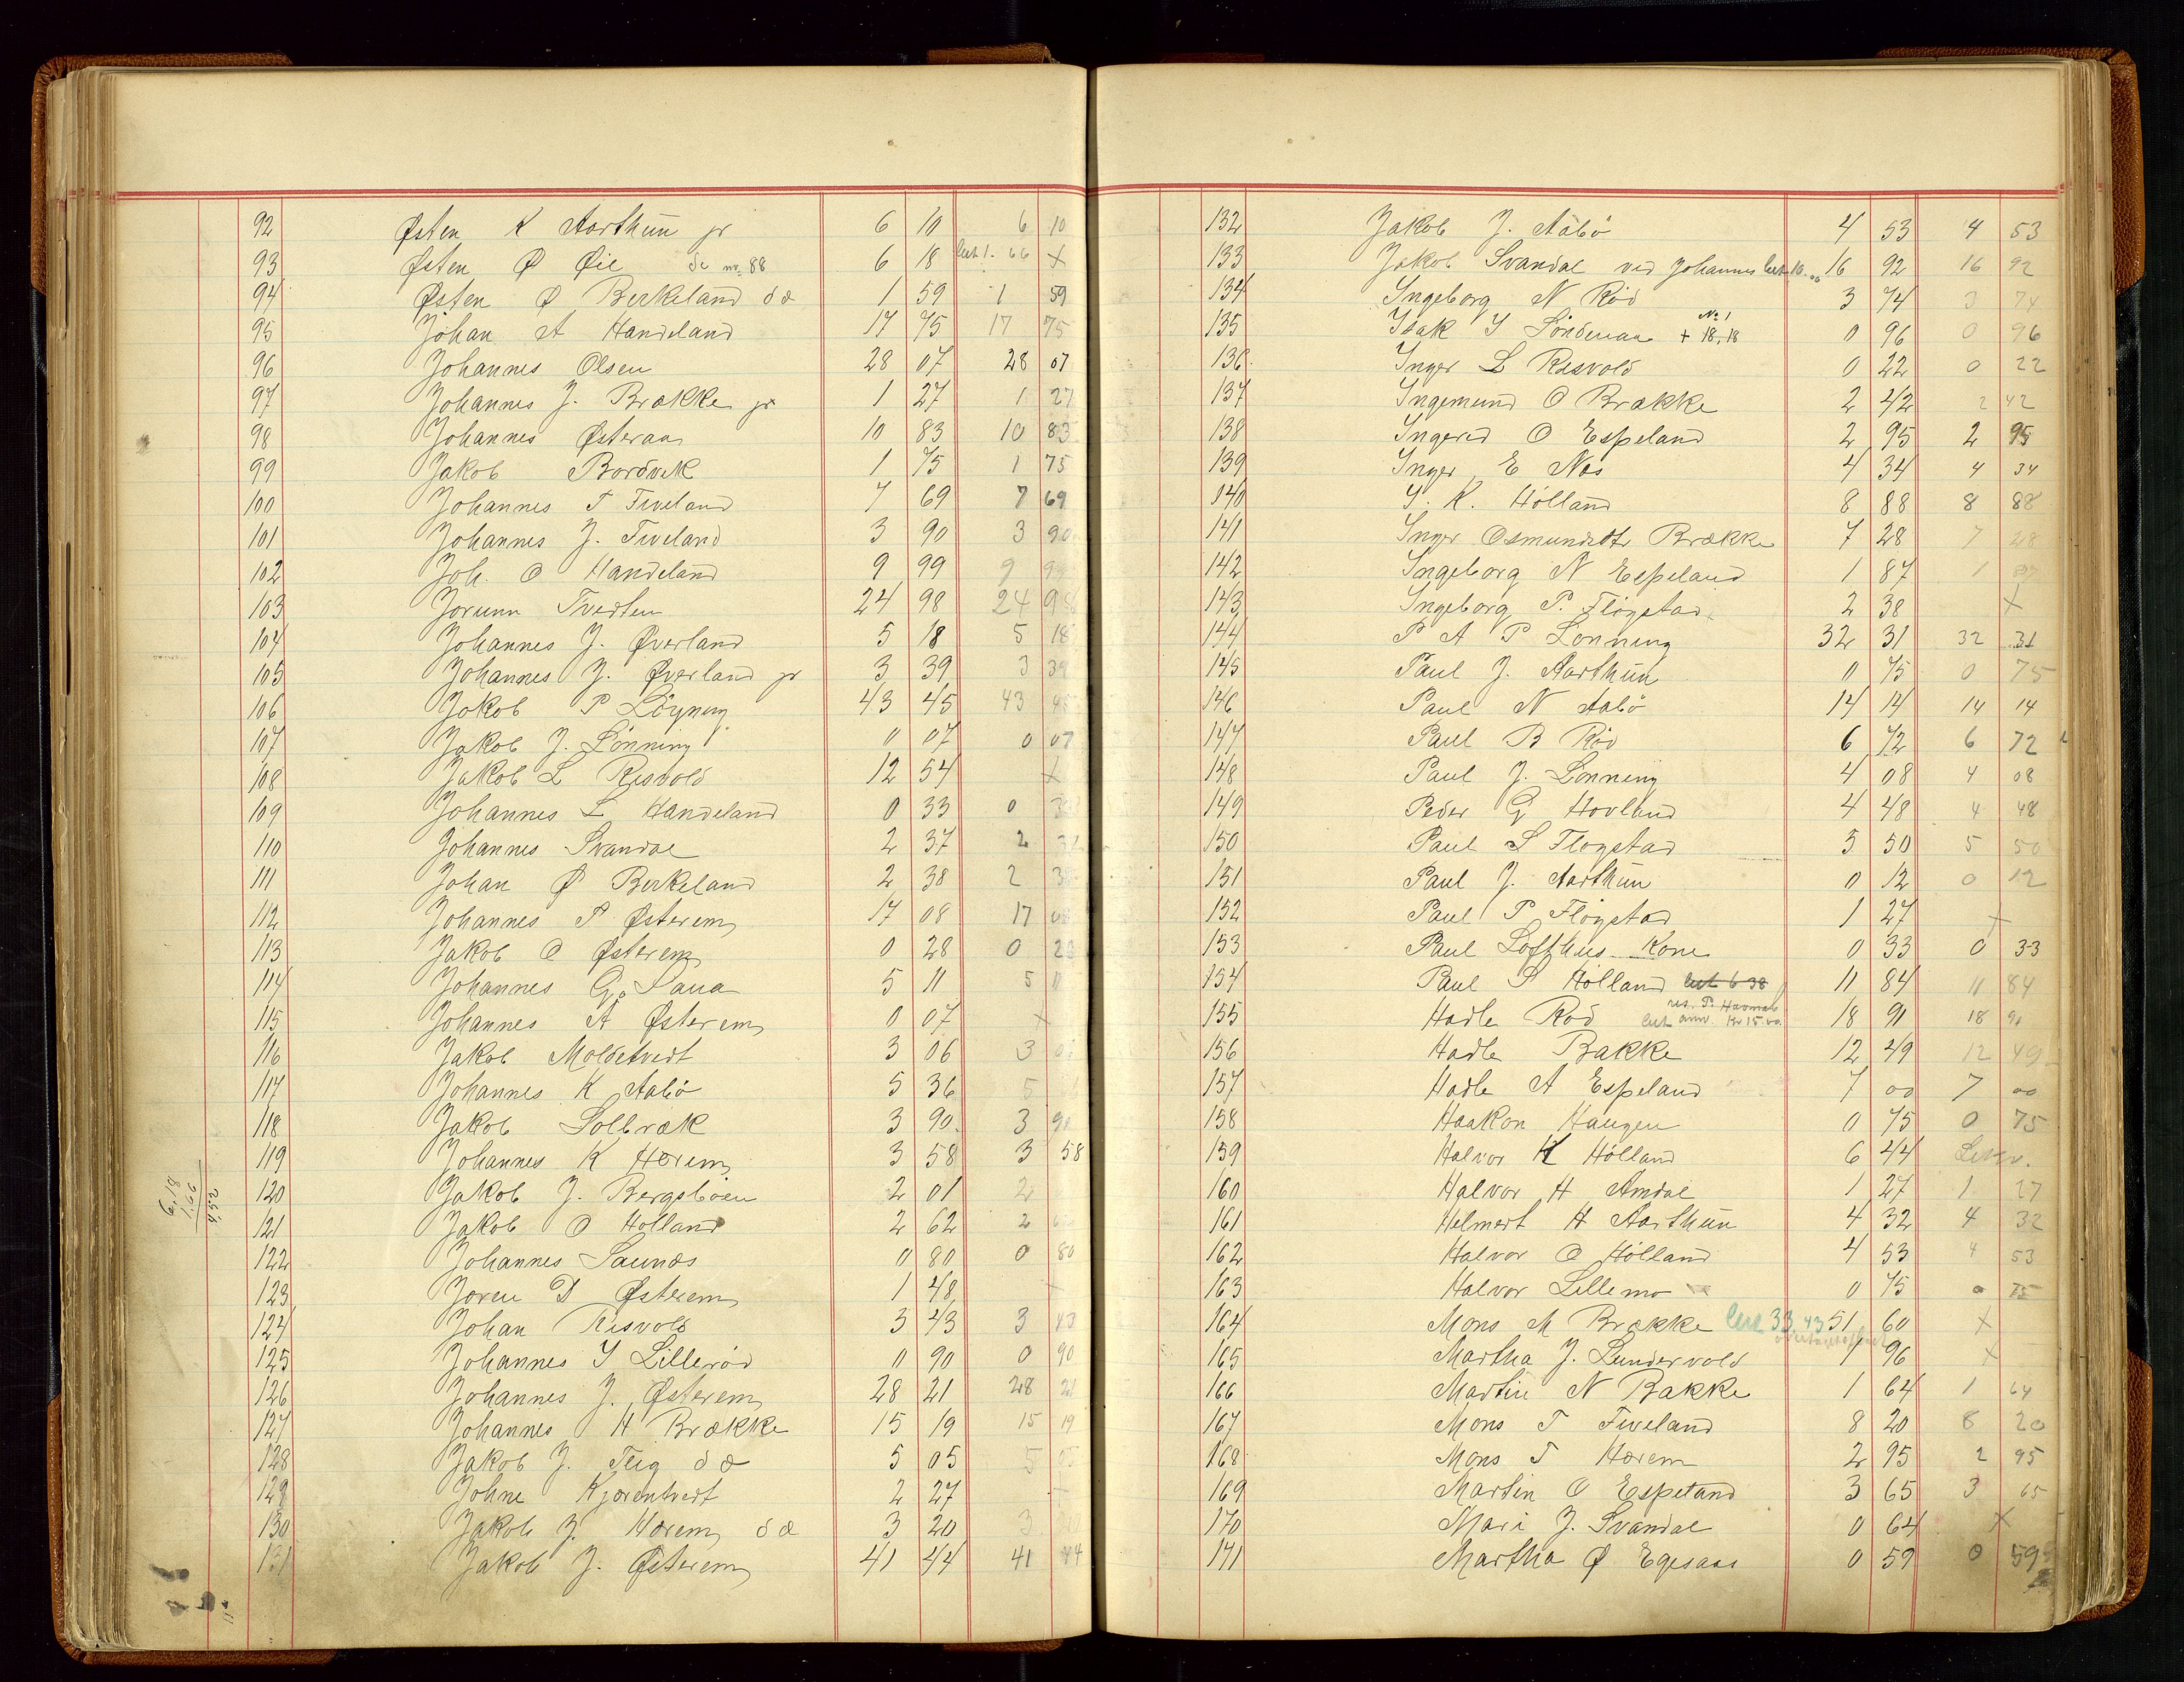 92 Østen K Aarthun jr 6 10 6 10
93 Østen Ø Øie se no. 88 6 18 66 X
94 Østen Ø Birkeland d æ 1 59 1 59
95 Johan A Handeland 17 75 17 75
96 Johannes Olsen 28 07 28 07
97 Johannes J. Brække jr 1 27 1 27
98 Johannes Østeraas 10 83 10 83
99 Jakob Bordvik 1 75 1 75
100 Johannes T Tiveland 7 69 7 69
101 Johannes J. Tiveland 3 90 3 90
102 Joh. O Handeland 9 99 9 99
103 Jorunn Tvedten 24 98 24 98
104 Johannes J. Øverland 5 18 5 18
105 Johannes J. Øverland jr 3 39 3 39
106 Jakob P Lögning 43 45 43 45
107 Jakob J. Lönning 0 07 0 07
108 Jakob L Risvold 12 54 X
109 Johannes L Handeland 0 33 0 33
110 Johannes Svandal 2 37 2
111 Johan Ø Birkeland 2 38 2 38
112 Johannes P Østerem 17 08 17 08
113 Jakob O Østerem 0 28 0 28
114 Johannes G. Saua 5 11 5 11
115 Johannes A Østerem 0 07 X
116 Jakob Moldetvedt 3 06 3
117 Johannes K Aabö 5 36 5
118 Jakob Solbræk 3 90 3 90
119 Johannes K Hærem 3 58 3 58
6,18
1.66
4,52
120 Jakob J. Bergsböen 2 01 2
121 Jakob O Holland 2 62 2
122 Johannes Saunæs 0 80 0 80
123 Joren D Østerem 1 48
124 Johan Risvold 3 43 3 43
125 Johannes I Lilleröd 0 90 0 90
126 Johannes J. Østerem 28 21 28 21
127 Johannes H Brække 15 19 15 19
128 Jakob J. Teig d æ 5 05 5
129 Johne Kjærentvedt 2 27
130 Jakob J. Hærem d æ 3 20 3
131 Jakob J. Østerem 41 44 41 44
132 Jakob J. Aabö 4 53 4 53
133 Jakob Svandal ved Johannes 16 92 16 92
134 Ingeborg N Röd 3 74 3 74
135 Isak I Söndenaa + No 1 18,18 0 96 0 96
136 Inger L Risvold 0 22 0 22
137 Ingemund O Brække 2 42 2 42
138 Ingerid O Espeland 2 95 2 95
139 Inger E Næs 4 34 4 34
140 I. K. Hölland 8 88 8 88
141 Inger Osmundsdtr Brække 7 28 7 28
142 Ingeborg N Espeland 1 87 1 87
143 Ingeborg P. Flögstad 2 38 X
144 P A P Lönning 32 31 32 31
145 Paul J. Aarthun 0 75 0 75
146 Paul N Aabö 14 14 14 14
147 Paul B Röd 6 72 6 72
148 Paul J. Lönning 4 08 4 08
149 Peder G Hovland 4 48 4 48
150 Paul S Flögstad 5 50 5 50
151 Paul J. Aarthun 0 12 0 12
152 Paul P Flögstad 1 27 X
153 Paul Lofthus Kone 0 33 0 33
154 Paul S Hölland 6 38 11 84 11 84
155 Hadle Röd 18 91 18 91
156 Hadle Bakke 12 49 12 49
157 Hadle A Espeland 7 00 7 00
158 Haakon Haugen 0 75 0 75
159 Halvor K Hölland 6 44
160 Halvor H Amdal 1 27 1 27
161 Helmert H Aarthun 4 32 4 32
162 Halvor O Hölland 4 53 4 53
163 Halvor Lillemo 0 75 0 75
164 Mons M Brække 33,43 51 60 X
165 Martha J. Lundervold 1 96 X
166 Martin N Bakke 1 64 1 64
167 Mons T Tiveland 8 20 8 20
168 Mons T Hærem 2 95 2 95
169 Martin O Espeland 3 65 3 65
170 Mari J. Svandal 0 64 X
171 Martha Ø Egesaas 0 59 0 59